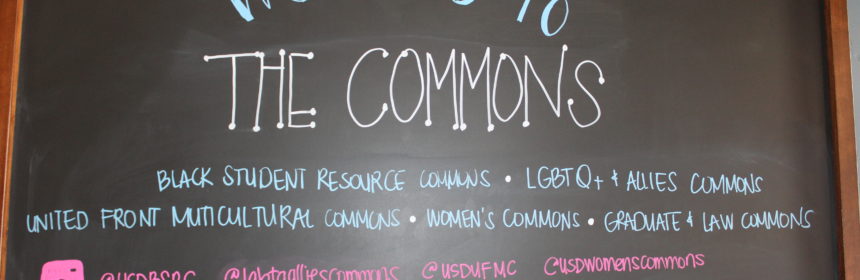 THE COMMONS
BLACK STUDENT RESOURCE COMMONS • LGBTQ+ & ALLIES COMMONS
UNITED FRONT MUTICULTURAL COMMONS • WOMEN'S COMMONS • GRADUATE & LAW COMMONS
@USDBSRC @lgbtqalliescommons @USDUFMC @usdwomenscommons